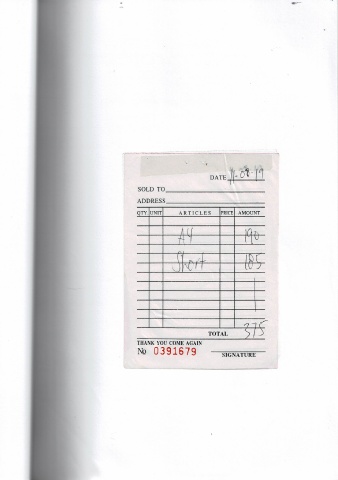 DATE 11-08-19
SOLD TO
ADDRESS
QTY UNIT ARTICLES PRICE AMOUNT
A4 190
Short 185
TOTAL 375
THANK YOU COME AGAIN
No 0391679
SIGNATURE